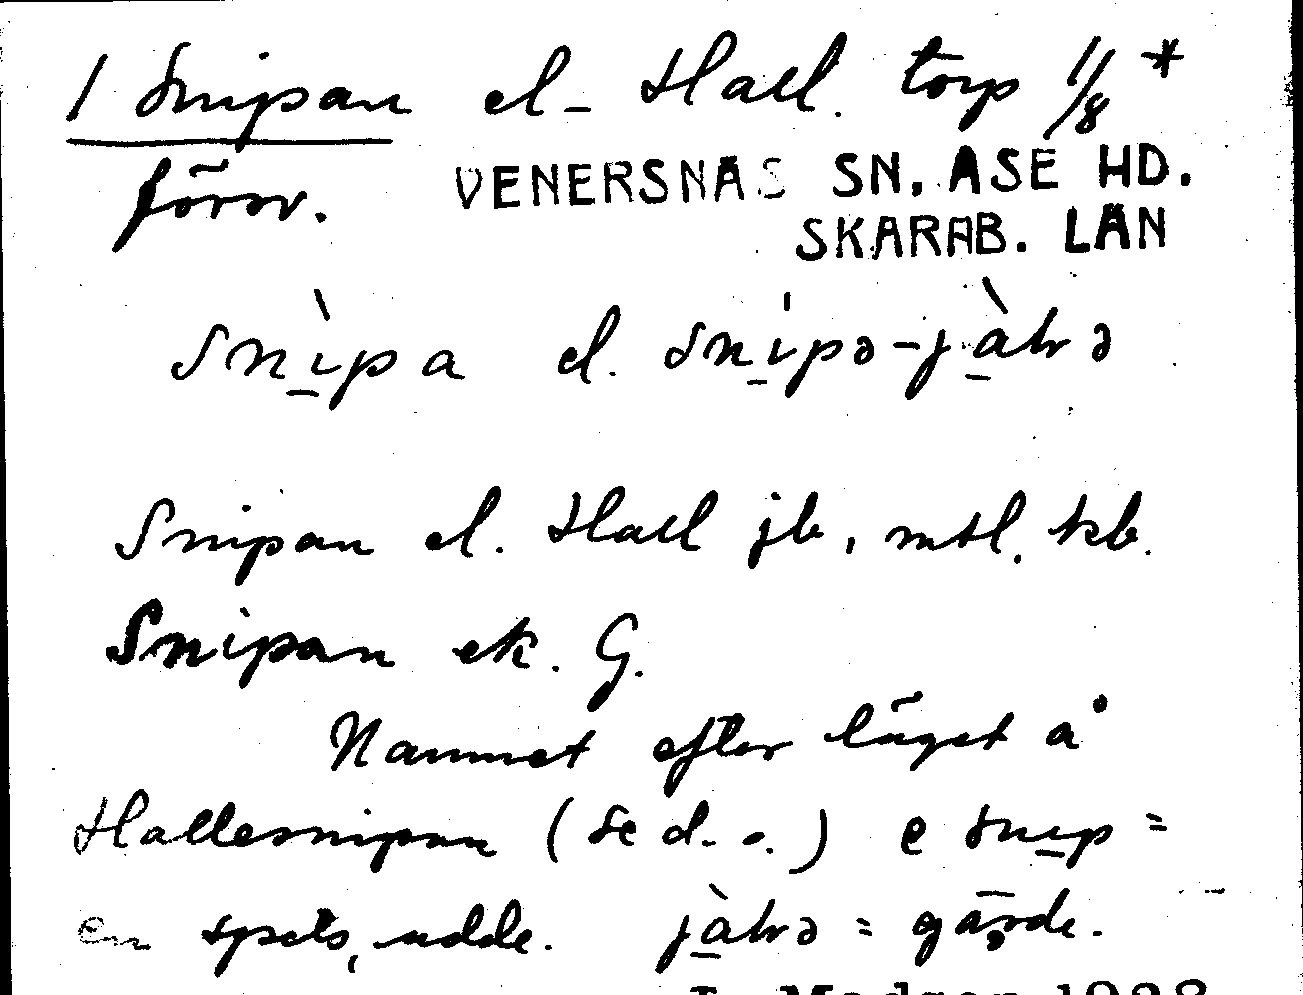 1 Snipan el. Hall torp 1/8 *
försv. VENERSNÄS SN. ÅSE HD.
SKARAB. LÄN
snìpa el. snipə-jàhrə
Snipan el. Hall jb, mtl. kb.
Snipan ek. G.
Namnet efter läget å
Hallersnipan (se d. o.) e snip =
en spets, udde. jàhrə = gärde.